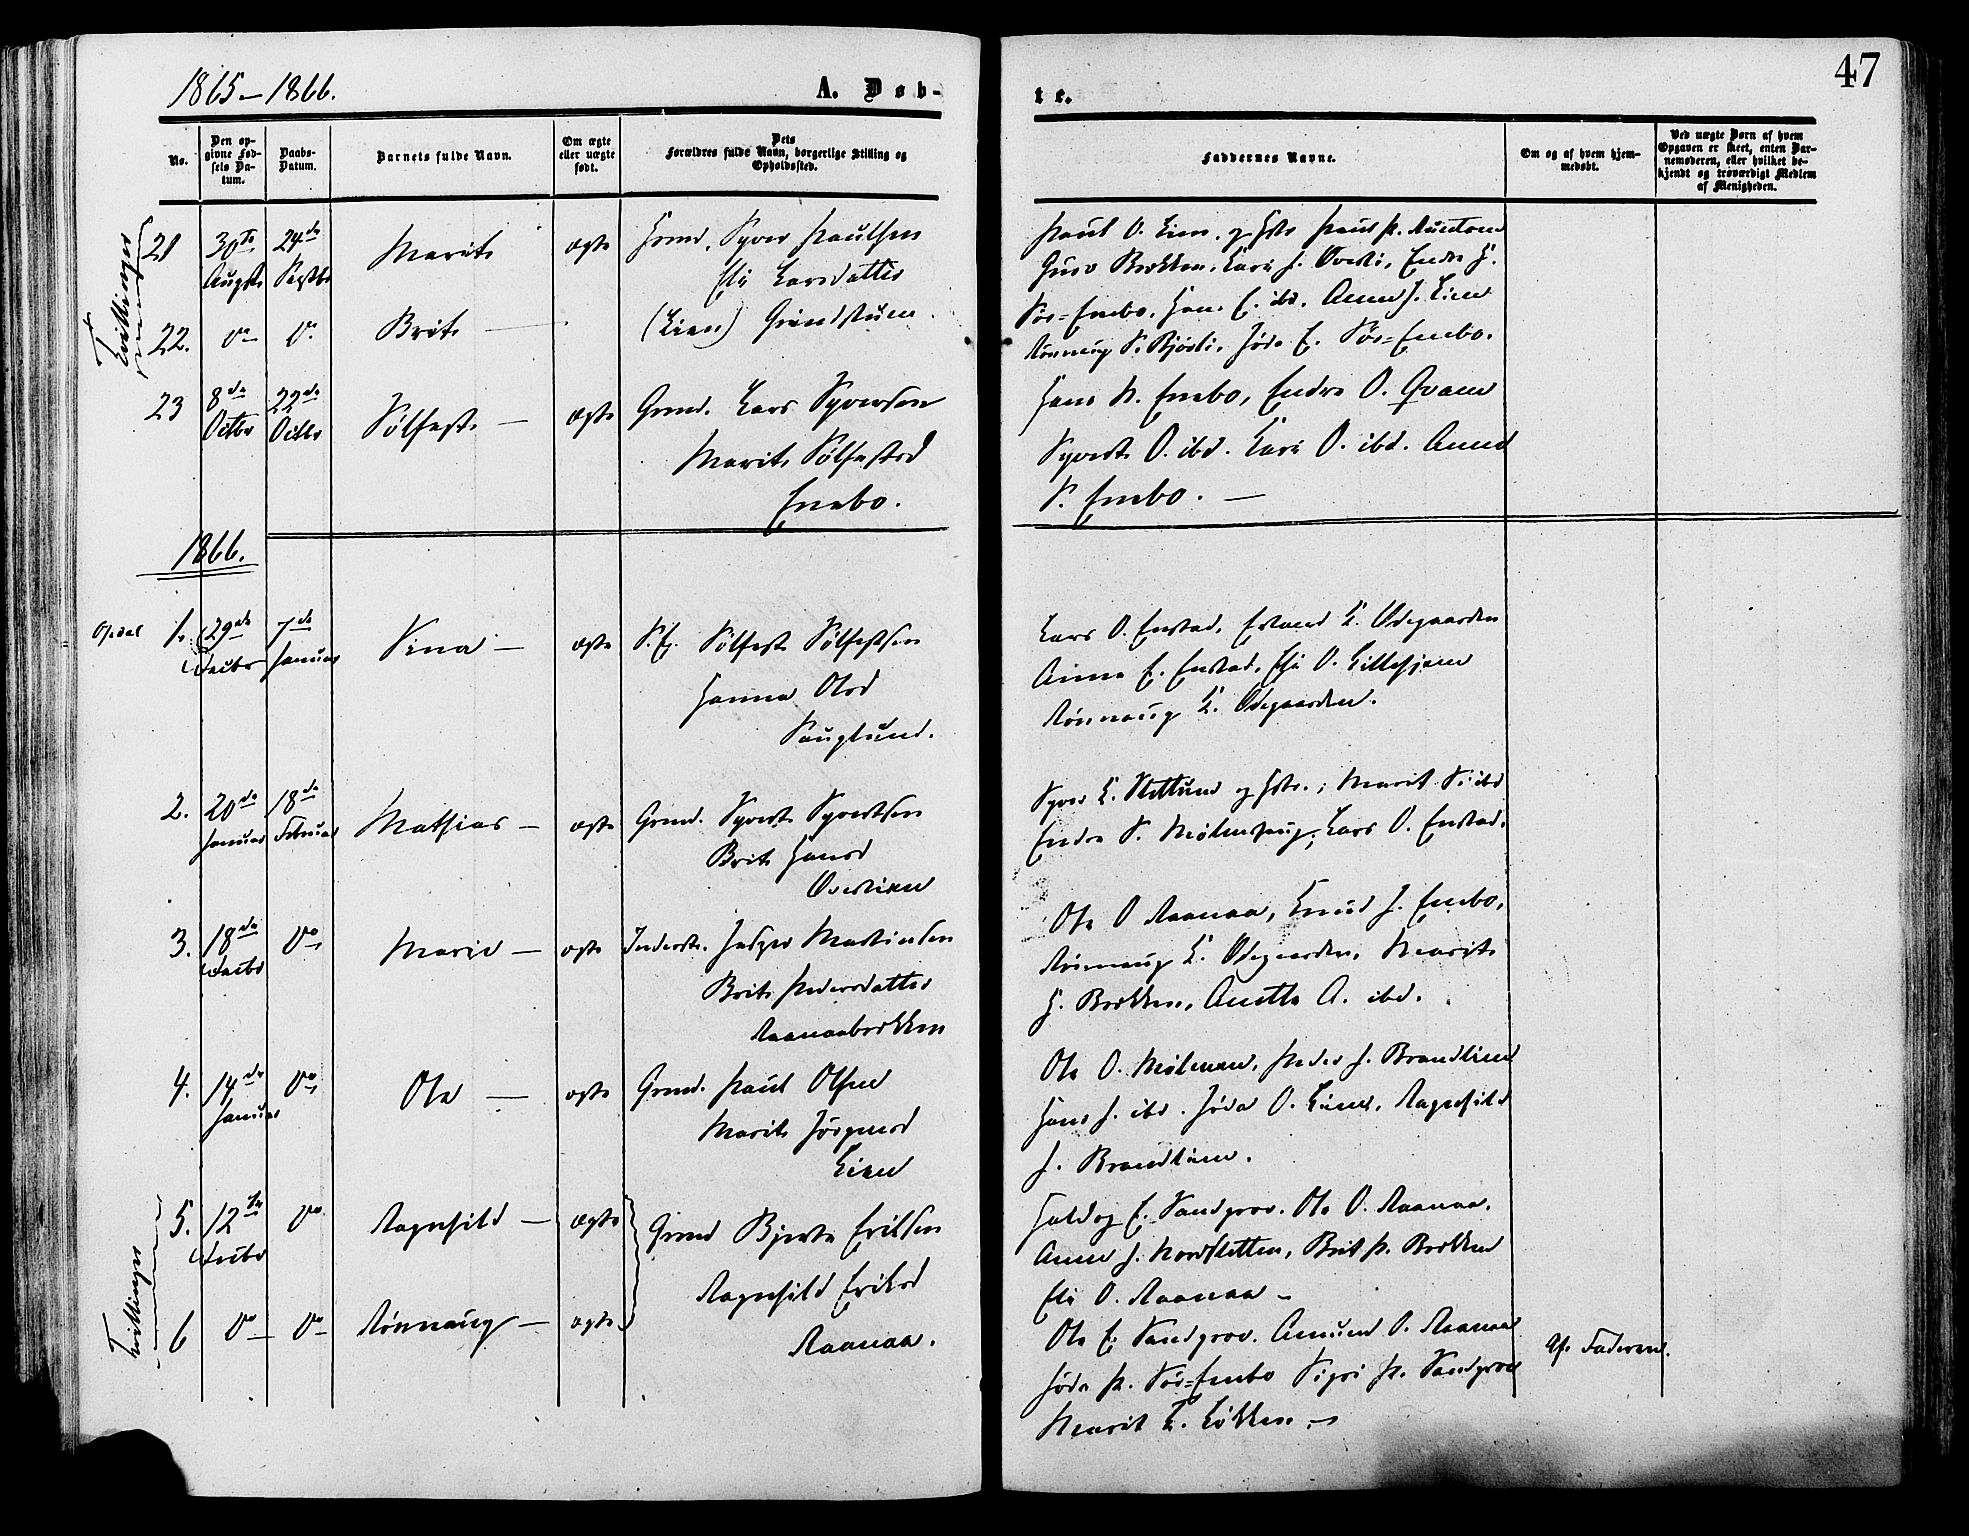 1865-1866.
A. Døb-
te.
47
No.
Den op-
givne Fød-
sels Da-
tum.
Daabs-
Datum.
Barnets fulde Navn.
Om ægte
eller uægte
født.
Dets
Forældres fulde Navn, borgerlige Stilling og
Opholdssted.
Faddernes Navne.
Om og af hvem hjem-
medøbt.
Ved uægte Børn af hvem
Opgaven er skeet, enten Bar-
nemoderen, eller hvilket be-
kjendt og troværdigt Medlem
af Menigheden.
Tvillinger
21 30te Augst 24de Septbr Marit ægte Syver Paulsen
Eli Larsdatter
22. do do Brit (Lien) Grindstuen.
Paul O. Lien
Guro Brekken, Kari J. Øverli, Endre H.
Sør-Enebo, Hans E. ibd. Anne J. Lien
Rønnaug S. Bjørli, Jøda E. Sør-Enebo.
23 8de Octbr 22de Octbr Sølfest - ægte Grmd. Lars Syversen
Marit Sølfestsd
Enebo.
Hans N. Enebo, Endre O. Qvam
Syvert O. ibd. Kari O. ibd. Anne
S. Enebo. -
1866.
Opdal 1. 29de Decbr 7de Januar Sina - ægte S. E. Sølfest Sølfestsen
Hanna Olsd
Lars O. Enstad, Erland K. Ødegaarden
Anne E. Enstad, Eli O. Lillehjem
Rønnaug K. Ødegaarden.
2. 20de Januar 18de Februar Mathias - ægte Grmd. Syvert Syvertsen
Brit Hansd
Øverlien
Syver K. Slettum og Hstr.; Marit S. ibd
Endre S. Mølmshaug, Lars O. Enstad.
3. 18de Decbr do Marie - ægte Inderst. Jesper Martinsen
Brit Pedersdatter
Raanaabrekken
Ole O Raanaa, Knud J. Enebo,
Rønnaug K. Ødegaarden, Marit
H. Brekken, Anette A. ibd.
4. 14de Januar do Ole - ægte Grmd. Paul Olsen
Marit Jørgensd
Lien
Ole O. Mølmen, Peder J. Brandlien
Hans J. ibd. Jøda O. Lien, Ragnhild
J. Brandlien.
Tvillinger
5. 12te Decbr do Ragnhild - ægte Grmd Bjerte Eriksen
Ragnhild Eriksd
Raanaa.
E. Sandgrov. Ole O. Raanaa,
Anne J. Nordsletten, Brit P. Brekken
Eli O. Raanaa -
6 do do Rønnaug - ægte
Ole E. Sandgrov. Amund O. Raanaa
Jøda P. Sør-Enebo Sigri P. Sandgrov
Marit K. Løkken -
Af Faderen.